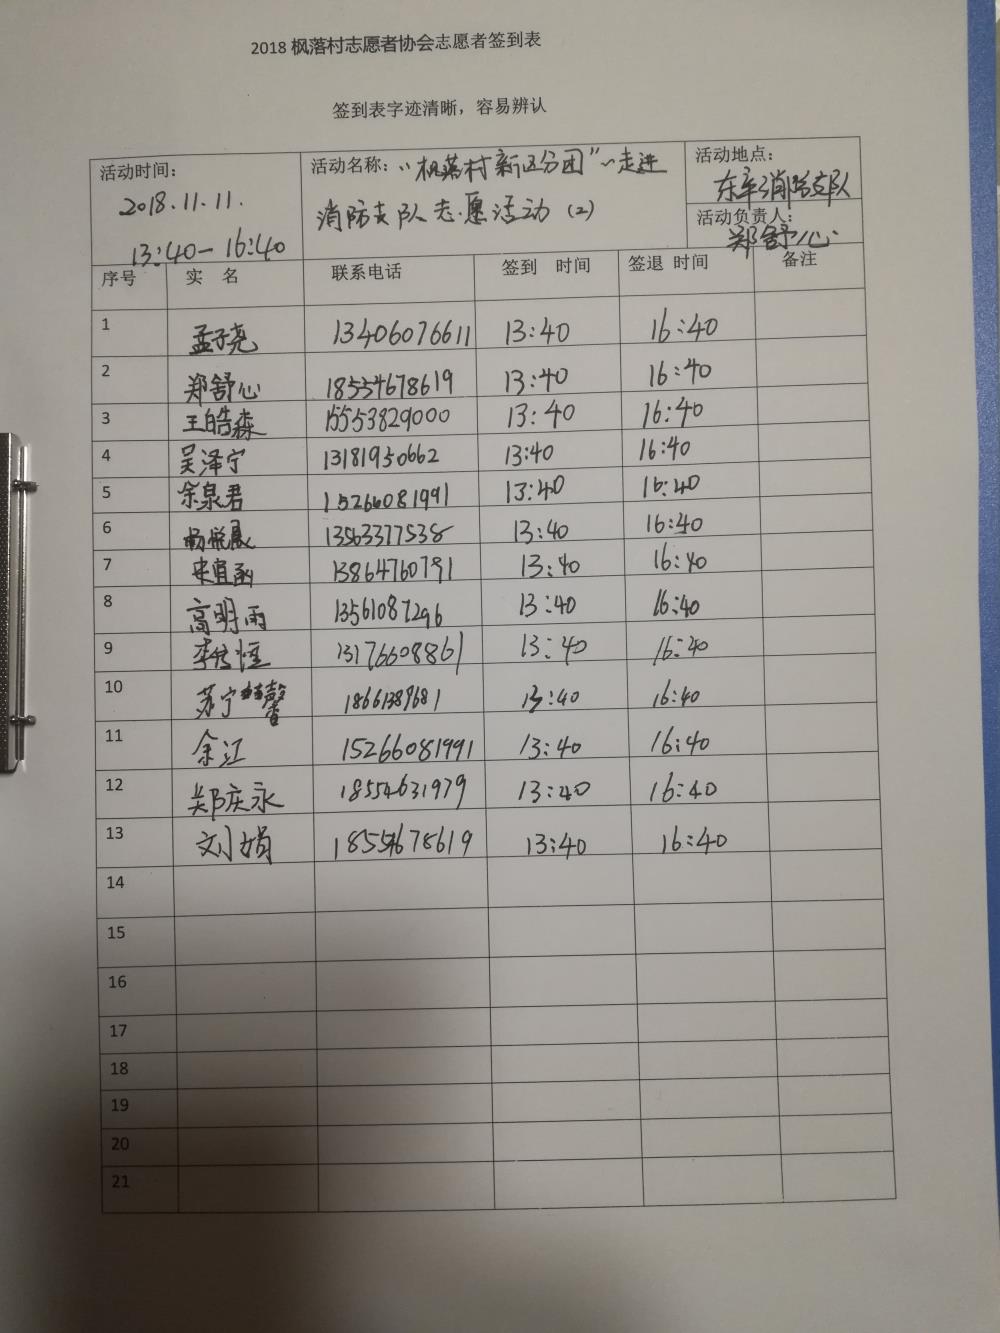 2018 枫落村志愿者协会志愿者签到表
签到表字迹清晰，容易辨认
活动时间：
2018.11.11.
13:40—16:40
活动名称：“枫落村新区分团”~走进
消防支队志愿活动（2）
活动地点：
消防支队
活动负责人：
郑舒心
序号 实 名 联系电话 签到 时间 签退 时间 备注
1 孟子尧 13406076611 13:40 16:40
2 郑舒心 18554678619 13:40 16:40
3 王皓森 15553829000 13:40 16:40
4 吴泽宁 13181950662 13:40 16:40
5 余泉君 15266081991 13:40 16:40
6 杨悦晨 13563377538 13:40 16:40
7 宋宜函 13864760791 13:40 16:40
8 高明雨 13561087296 13:40 16:40
9 李传恒 13176608861 13:40 16:40
10 苏宁馨 18661389681 13:40 16:40
11 余江 15266081991 13:40 16:40
12 郑庆永 18554631979 13:40 16:40
13 刘娟 18554678619 13:40 16:40
14
15
16
17
18
19
20
21